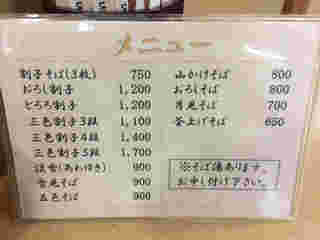 メニュー
割子そば(3枚) 750
おろし割子 1,200
とろろ割子 1,200
三色割子3段 1,100
三色割子4段 1,400
三色割子5段 1,700
900
そば 900
五色そば 900
山かけそば 800
おろしそば 800
月見そば 700
釜上げそば 650
※そば湯あります。
お申し付け下さい。